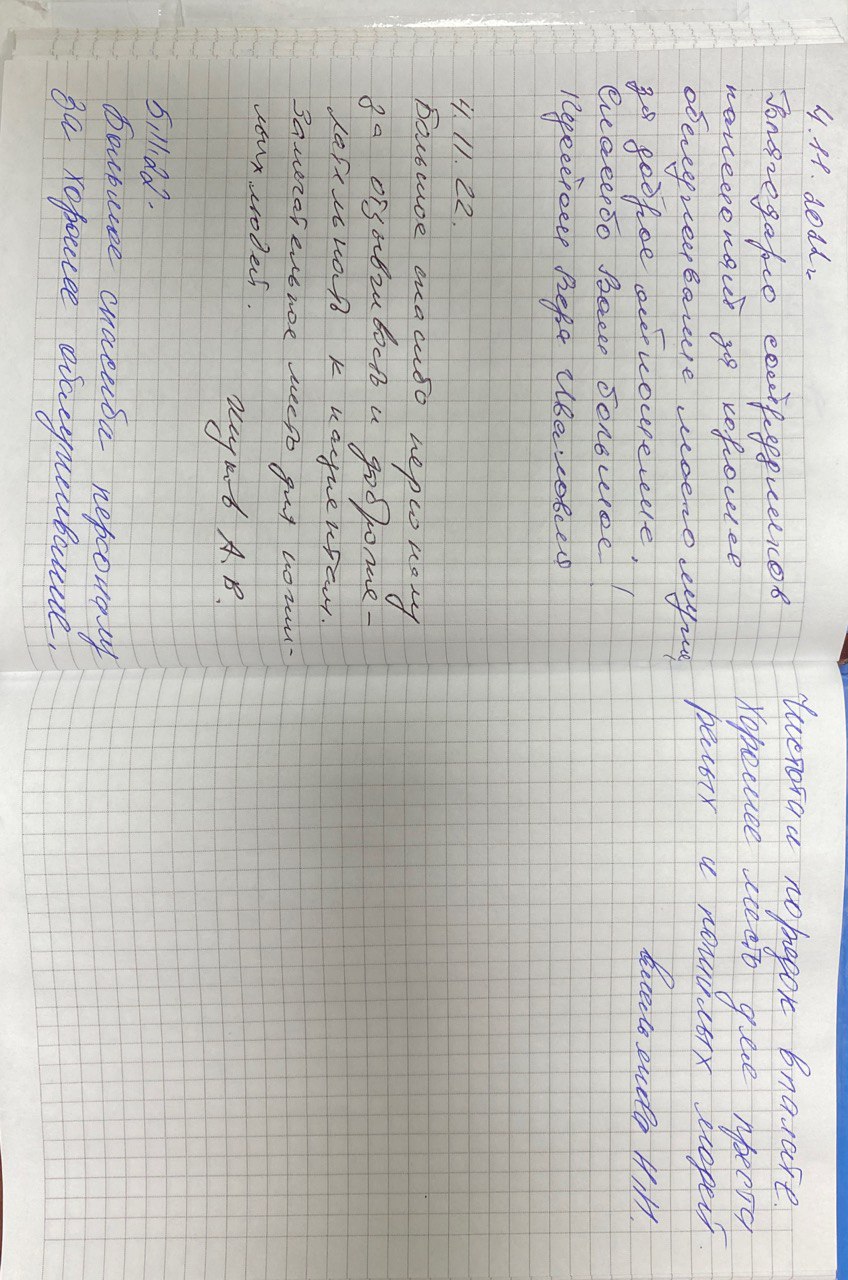 4.11.2022г
Благодарю сотрудников
пансионата за хорошее
обслуживание моего мужа,
за доброе отношение,
Спасибо Вам большое!
Вера Ивановна
4.11.22.
Большое спасибо персоналу
за отзывчивость и доброже-
лательность к пациентам.
Замечательное место для пожи-
лых людей.
Жуков А.В.
5.11.22.
Большое спасиба персоналу
За хорошее обслуживание.
Чистота и порядок в палате.
Хорошее место для преста
релых и пожилых людей.
Н.Н.